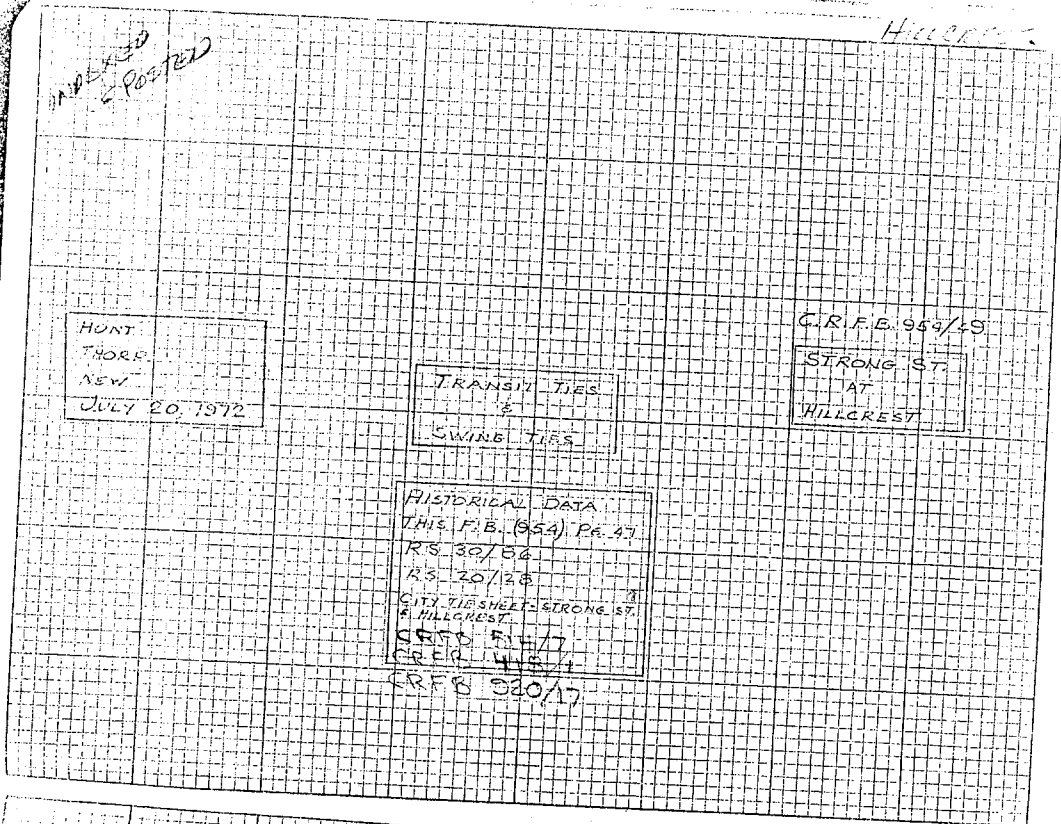 HILLCREST
INDEXED
& POSTED
HUNT
THORP
NEW
JULY 20, 1972
TRANSIT TIES
&
SWING TIES
C.R.F.B. 954/49
STRONG ST.
AT
HILLCREST
HISTORICAL DATA
THIS F.B. (954) PG. 47
RS 30/86
RS 20/28
CITY TIE SHEET = STRONG ST.
& HILLCREST
CRFB 514/7
CRFB
CRFB 920/17